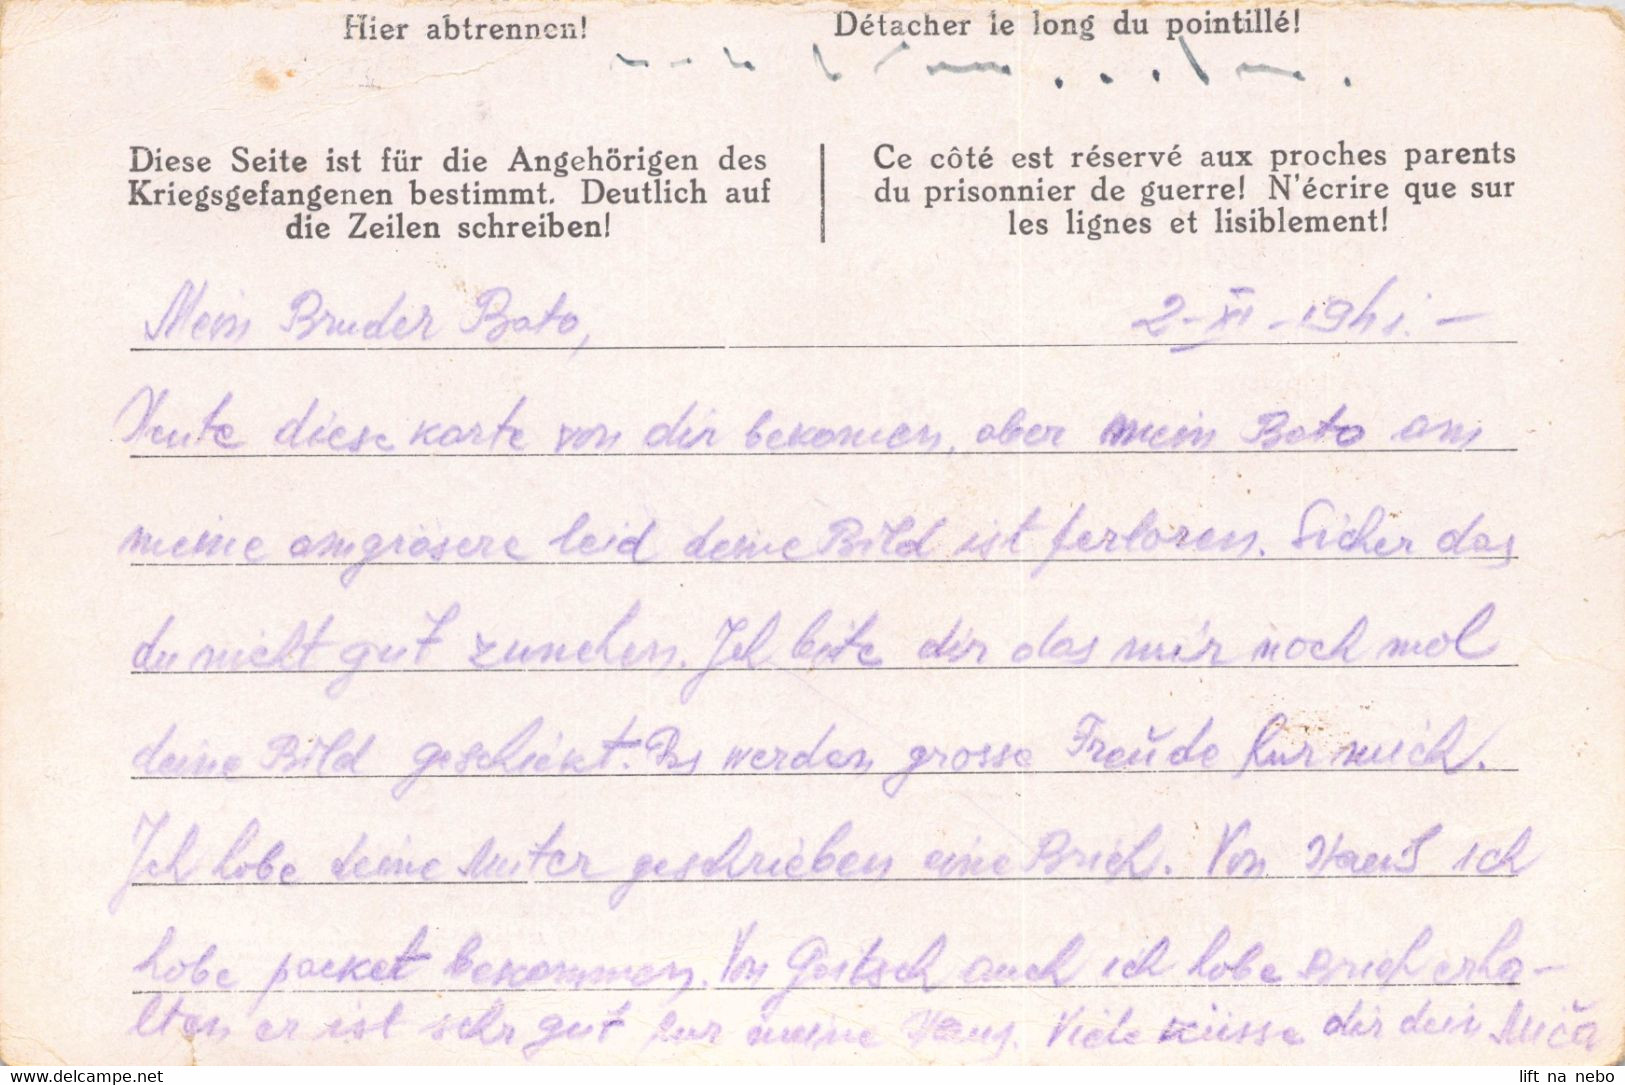 Hier abtrennen!
Détacher le long du pointillé!
Diese Seite ist für die Angehörigen des
Kriegsgefangenen bestimmt. Deutlich auf
die Zeilen schreiben!
Ce côté est réservé aux proches parents
du prisonnier de guerre! N'écrire que sur
les lignes et lisiblement!
Mein Bruder Bato, 2-XI-1941.-
Heute diese karte von dir bekomen, aber mein Bato am
meine amgrösere leid deine Bild ist ferloren. Sicher das
du nicht gut zunehen. Ich bite dir das mir noch mal
deine Bild geschickt. Es werden grosse Freude fur mich.
Ich habe deine Muter geschrieben eine Brief. Von Haus ich
habe packet bekommen. Von auch ich habe erha-
lten er ist sehr gut fur meine Haus. Viele küsse dir dein Mića
lift na nebo